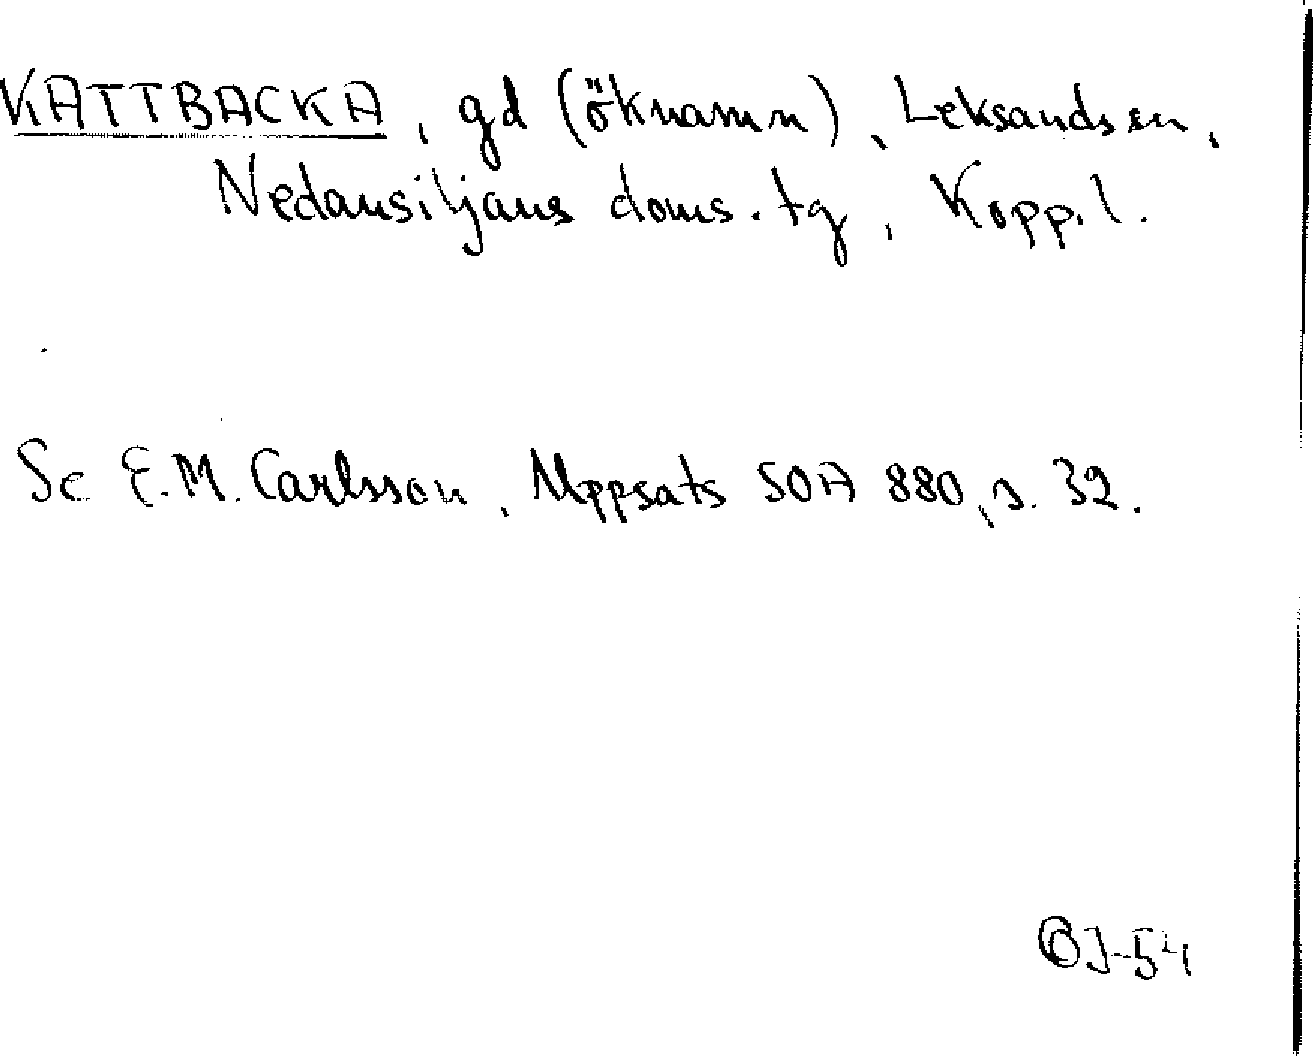 KATTBACKA, gd (öknamn), Leksands sn,
Nedansiljans doms. tg, Kopp. l.
Se E.M. Carlsson, Uppsats SOA 880, s. 32.
OJ-54